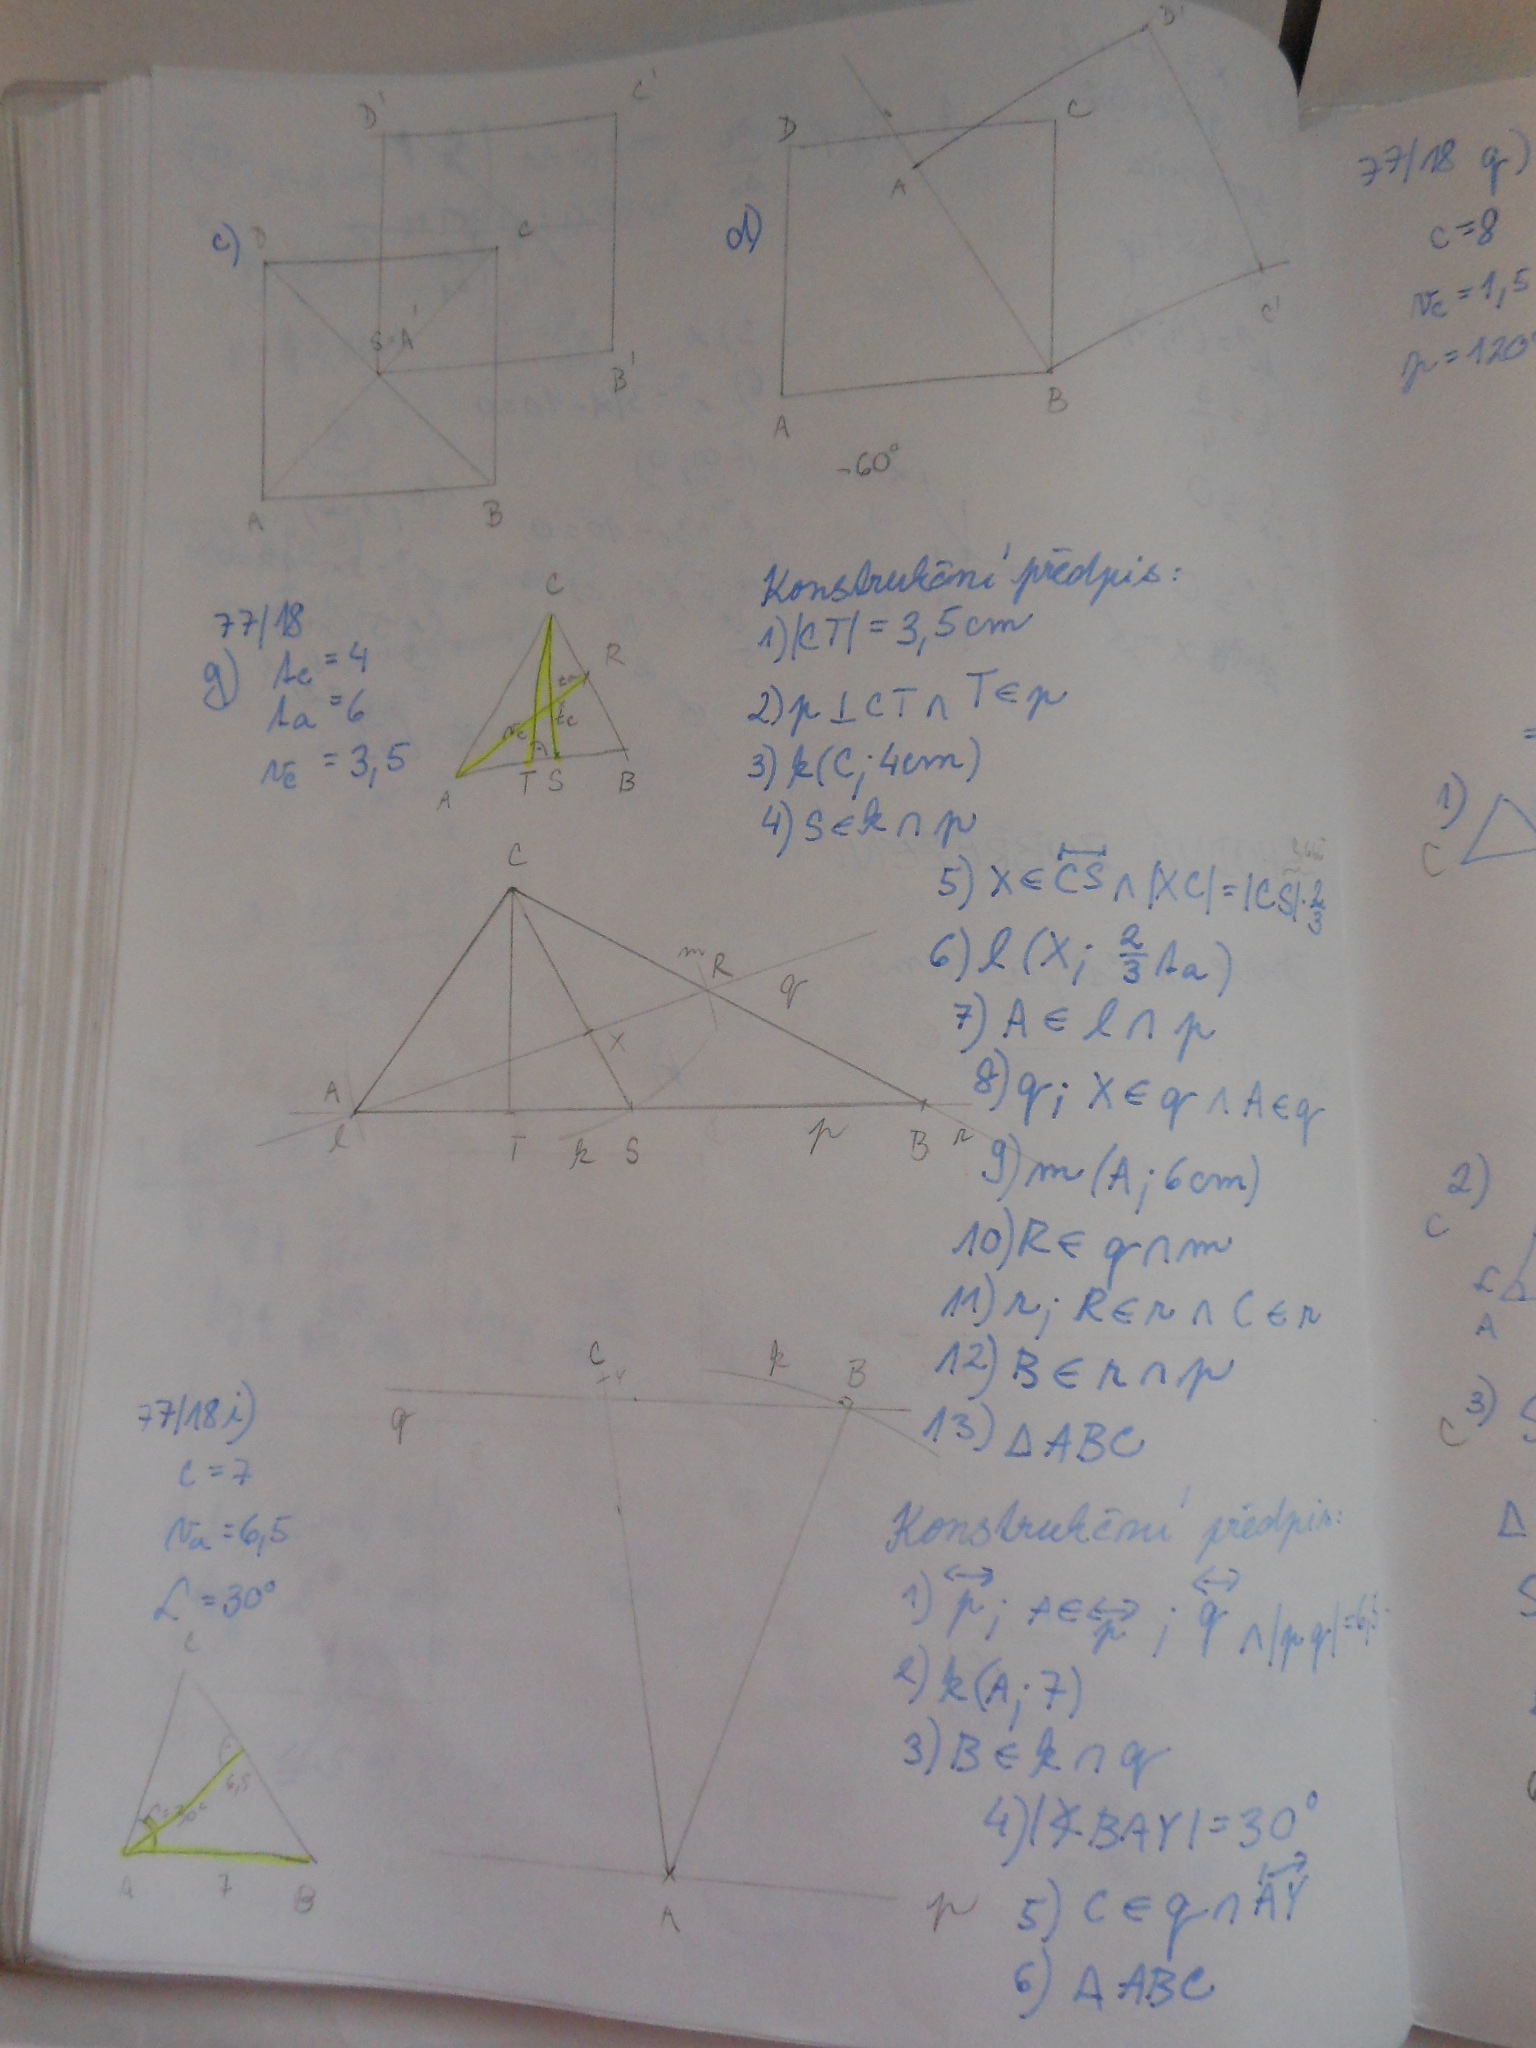 D'
C'
c)
D
C
S=A'
B'
A
B
d)
D
C
D'
A
C'
A
B
-60°
77/18 g)
c=8
vc=1,5
77/18
g) tc=4
ta=6
vc=3,5
C
R
ta
tc
vc
A
T S
B
Konstrukční předpis:
1) |CT| = 3,5cm
2) p ⊥ CT ∩ T ∈ p
3) k(C; 4cm)
4) S ∈ k ∩ p
5) X ∈ CS ∩ |XC| = |CS| · 2/3
6) l(X; 2/3 ta)
7) A ∈ l ∩ p
8) q; X ∈ q ∩ A ∈ q
9) m(A; 6cm)
10) R ∈ q ∩ m
11) r; R ∈ r ∩ C ∈ r
12) B ∈ r ∩ p
13) △ABC
C
m
R
q
X
A
l
T
k
S
p
B
r
77/18 i)
c=7
va=6,5
α=30°
C
6,5
A
7
B
C
k
B
q
A
p
Konstrukční předpis:
1) p; A ∈ p; q ∩ |pq| = 6,5
2) k(A; 7)
3) B ∈ k ∩ q
4) |∢BAY| = 30°
5) C ∈ q ∩ AY
6) △ABC
1)
C
2)
C
A
3)
C